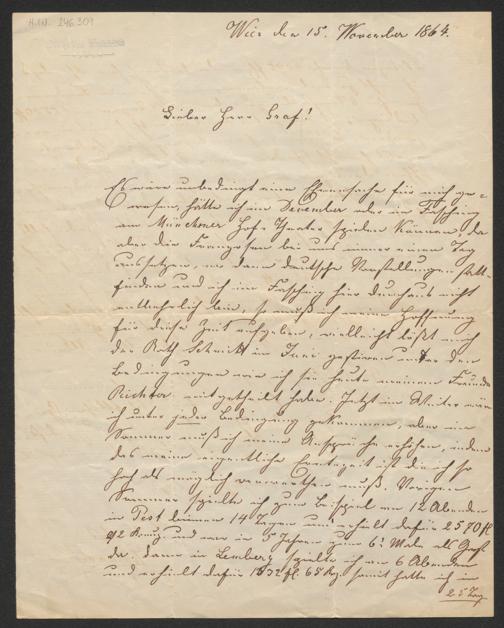 H.I.N. 246.309
Wien den 15. November 1864.
Lieber Herr Graf!
Es wäre unbedingt eine Ehrensache für mich ge-
wesen, hätte ich im December oder im Fasching
am Münchner Hof-Theater spielen können, da
aber die Franzosen bei uns immer einen Tag
aussetzen, wo dann deutsche Vorstellungen statt
finden und ich im Fasching hier durchaus nicht
entbehrlich bin, so muß ich meine Hoffnung
für diese Zeit aufgeben, vielleicht läßt mich
der Rath Schmitt im Juni gastiren unter den
Bedingungen wie ich sie heute meinem Freunde
Richter mitgetheilt habe. Jetzt im Winter wäre
ich unter jeder Bedingung gekommen, aber im
Sommer muß ich meine Ansprüche erhöhen, indem
das meine eigentliche Erntezeit ist die ich so
hoch als möglich verwerthen muß. Vorigen
Sommer spielte ich zum Beispiel an 12 Abenden
in Pest binnen 14 Tagen und erhielt dafür 2570 fl
92 Kreuz und war in 5 Jahren zum 6. Male als Gast
da. Dann in Lemberg spielte ich an 6 Abenden
und erhielt dafür 1332 fl 65 Kz. somit hatte ich in
25 Tag